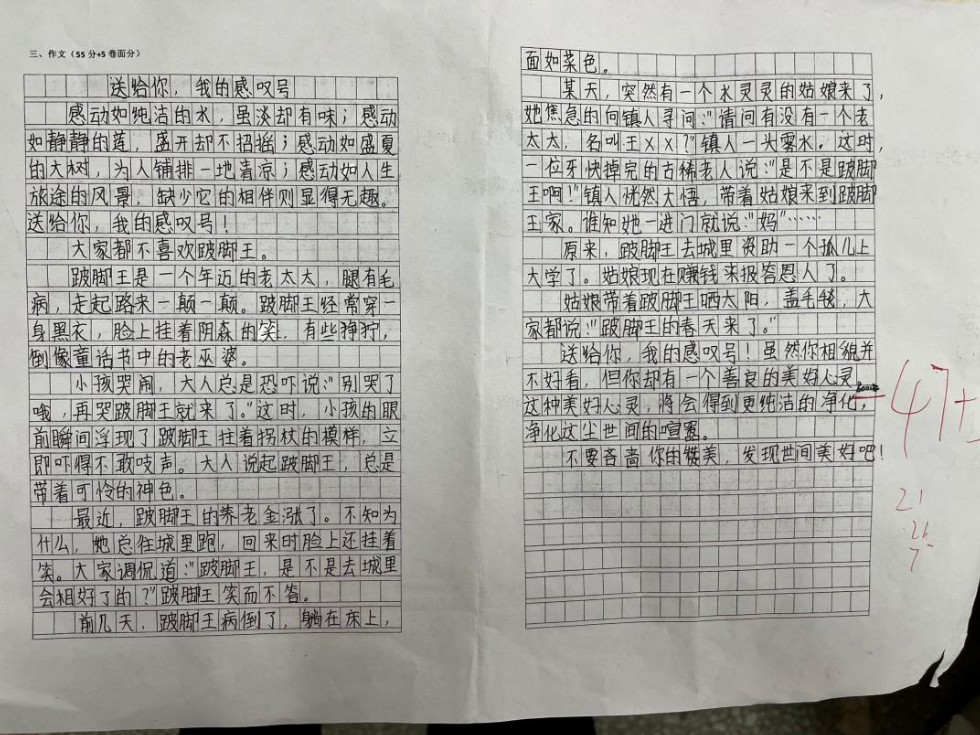 三、作文（55分+5卷面分）
送给你，我的感叹号
感动如纯洁的水，虽淡却有味；感动
如静静的莲，盛开却不招摇；感动如盛夏
的大树，为人铺排一地清凉；感动如人生
旅途的风景，缺少它的相伴则显得无趣。
送给你，我的感叹号！
大家都不喜欢跛脚王。
跛脚王是一个年迈的老太太，腿有毛
病，走起路来一颠一颠。跛脚王经常穿一
身黑衣，脸上挂着阴森的笑，有些狰狞，
倒像童话书中的老巫婆。
小孩哭闹，大人总是恐吓说：“别哭了
哦，再哭跛脚王就来了。”这时，小孩的眼
前瞬间浮现了跛脚王拄着拐杖的模样，立
即吓得不敢吱声。大人说起跛脚王，总是
带着可怜的神色。
最近，跛脚王的养老金涨了。不知为
什么，她总往城里跑，回来时脸上还挂着
笑。大家调侃道：“跛脚王，是不是去城里
会相好了的？”跛脚王笑而不答。
前几天，跛脚王病倒了，躺在床上，
面如菜色。
某天，突然有一个水灵灵的姑娘来了，
她焦急的向镇人寻问：“请问有没有一个老
太太，名叫王XX？”镇人一头雾水。这时，
一位牙快掉完的古稀老人说：“是不是跛脚
王啊！”镇人恍然大悟，带着姑娘来到跛脚
王家。谁知她一进门就说：“妈”……
原来，跛脚王去城里资助一个孤儿上
大学了。姑娘现在赚钱来报答恩人了。
姑娘带着跛脚王晒太阳，盖毛毯，大
家都说：“跛脚王的春天来了。”
送给你，我的感叹号！虽然你相貌并
不好看，但你却有一个善良的美好心灵。
这种美好心灵，将会得到更纯洁的净化，
净化这尘世间的喧嚣。
不要吝啬你的赞美，发现世间美好吧！
47+
21
7